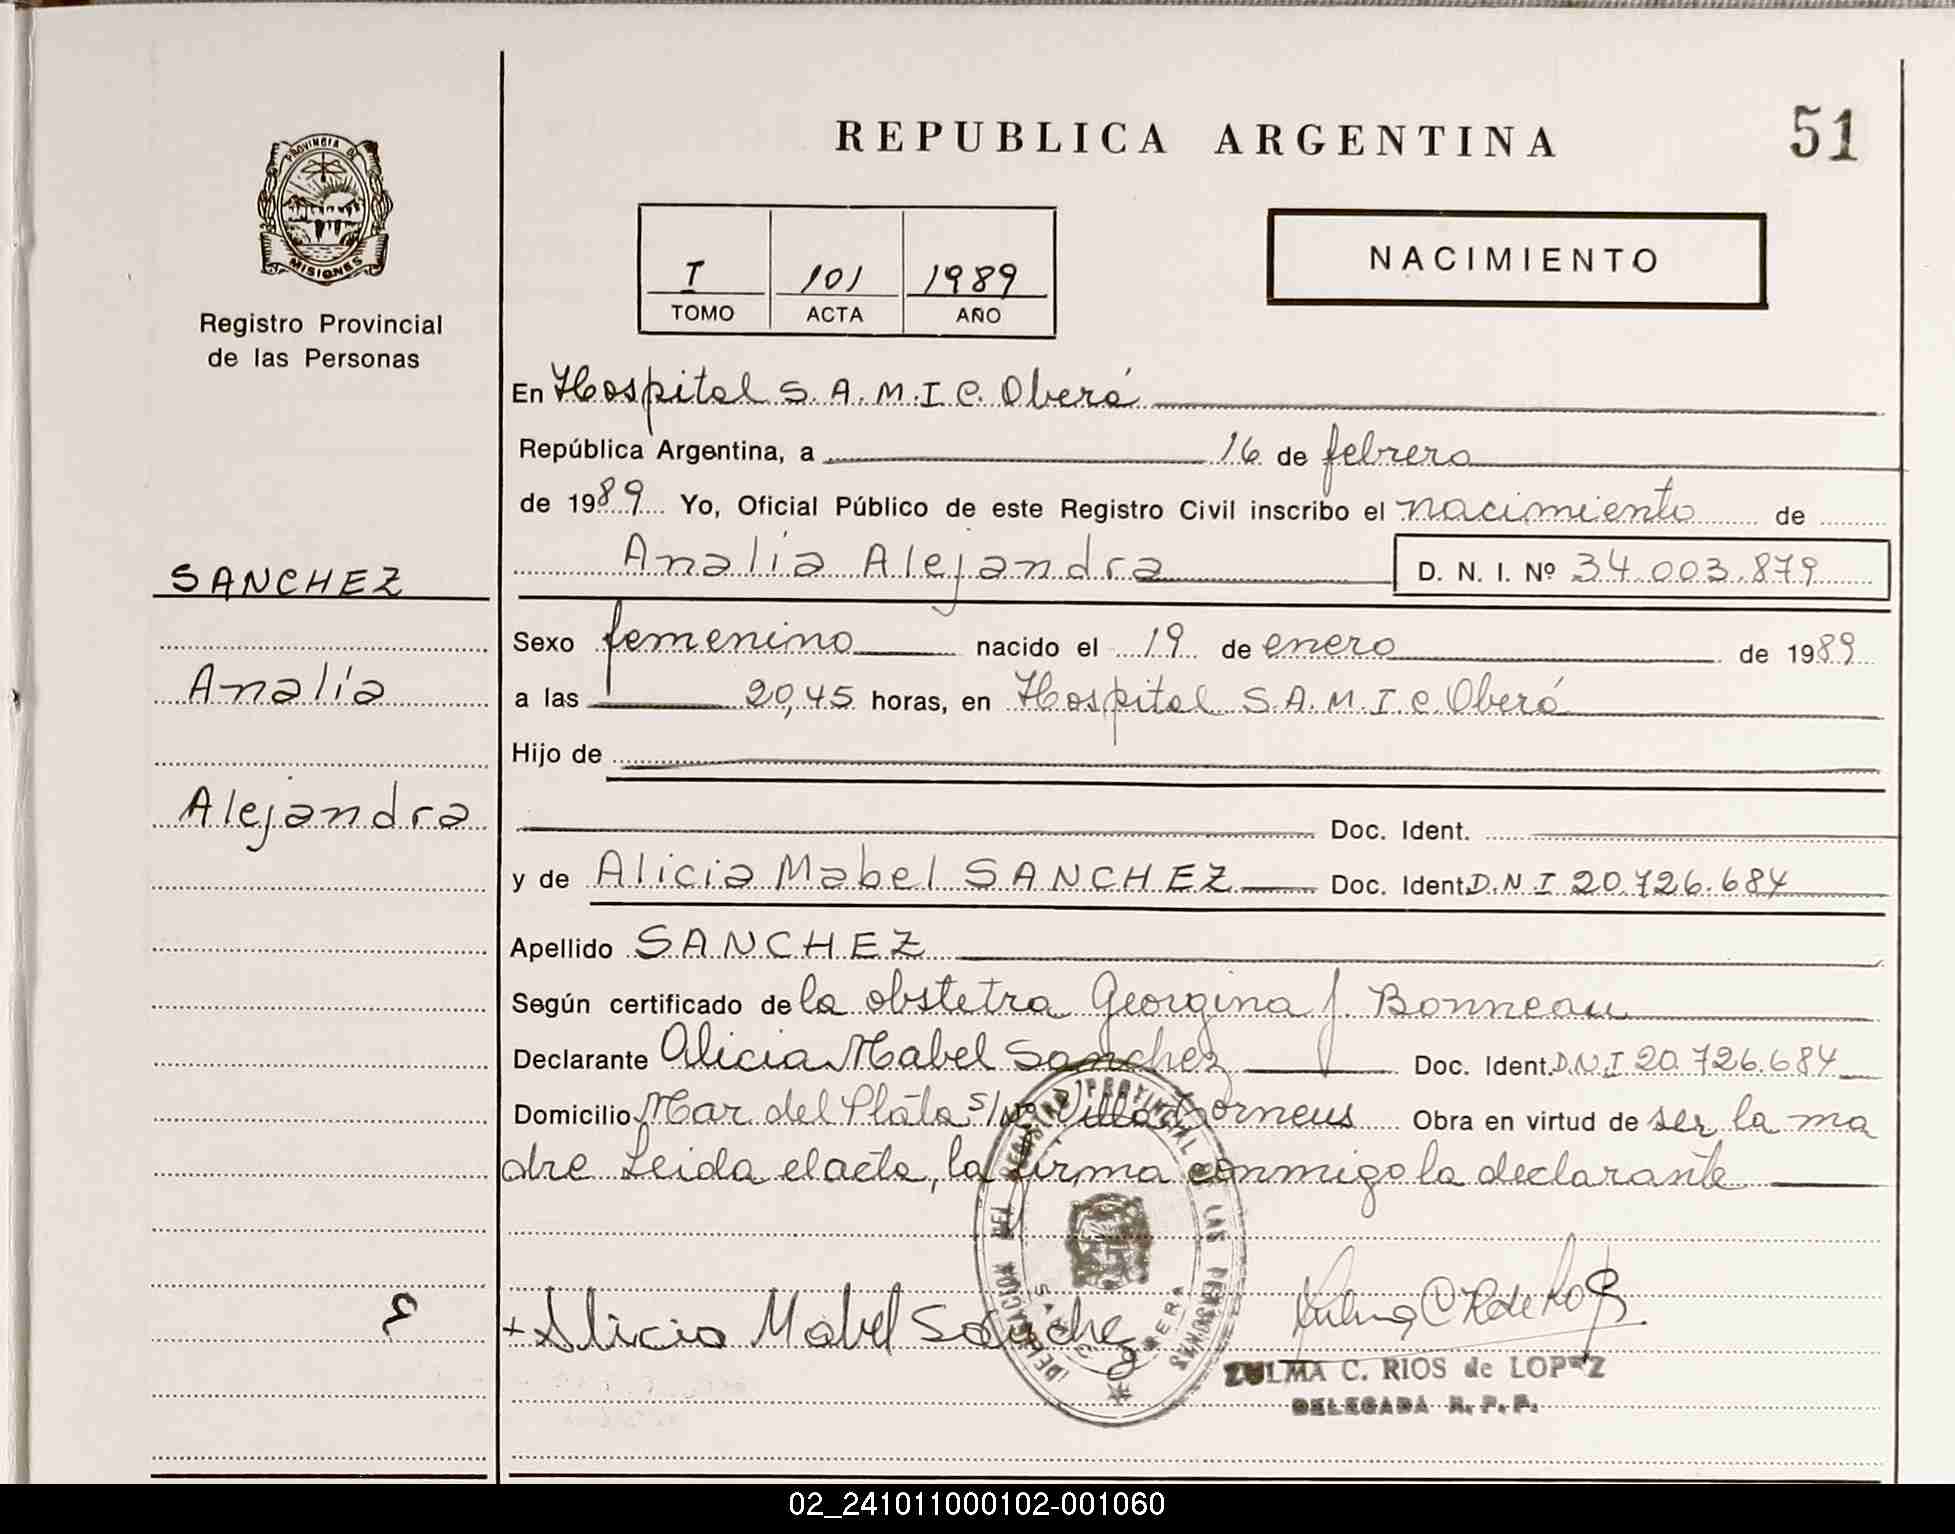 REPUBLICA ARGENTINA
51
PROVINCIA DE
MISIONES
Registro Provincial
de las Personas
I 101 1989
TOMO ACTA AÑO
NACIMIENTO
En Hospital S.A.M.I.C. Oberá
República Argentina, a 16 de febrero
de 1989 Yo, Oficial Público de este Registro Civil inscribo el nacimiento de
Analía Alejandra D. N. I. Nº 34.003.879
SANCHEZ
Analía
Alejandra
Sexo femenino nacido el 19 de enero de 1989
a las 20,45 horas, en Hospital S.A.M.I.C. Oberá
Hijo de
Doc. Ident.
y de Alicia Mabel SANCHEZ Doc. Ident. D.N.I 20.726.684
Apellido SANCHEZ
Según certificado de la obstetra Georgina J. Bonneau
Declarante Alicia Mabel Sanchez Doc. Ident. D.N.I 20.726.684
Domicilio Mar del Plata s/Nº Villa Obra en virtud de ser la ma
dre Leida el acta, la firma conmigo la declarante
DELEGACION DEL REGISTRO PROVINCIAL DE LAS PERSONAS
+ Alicia Mabel Sanchez
ZULMA C. RIOS de LOPEZ
DELEGADA R. P. P.
02_241011000102-001060